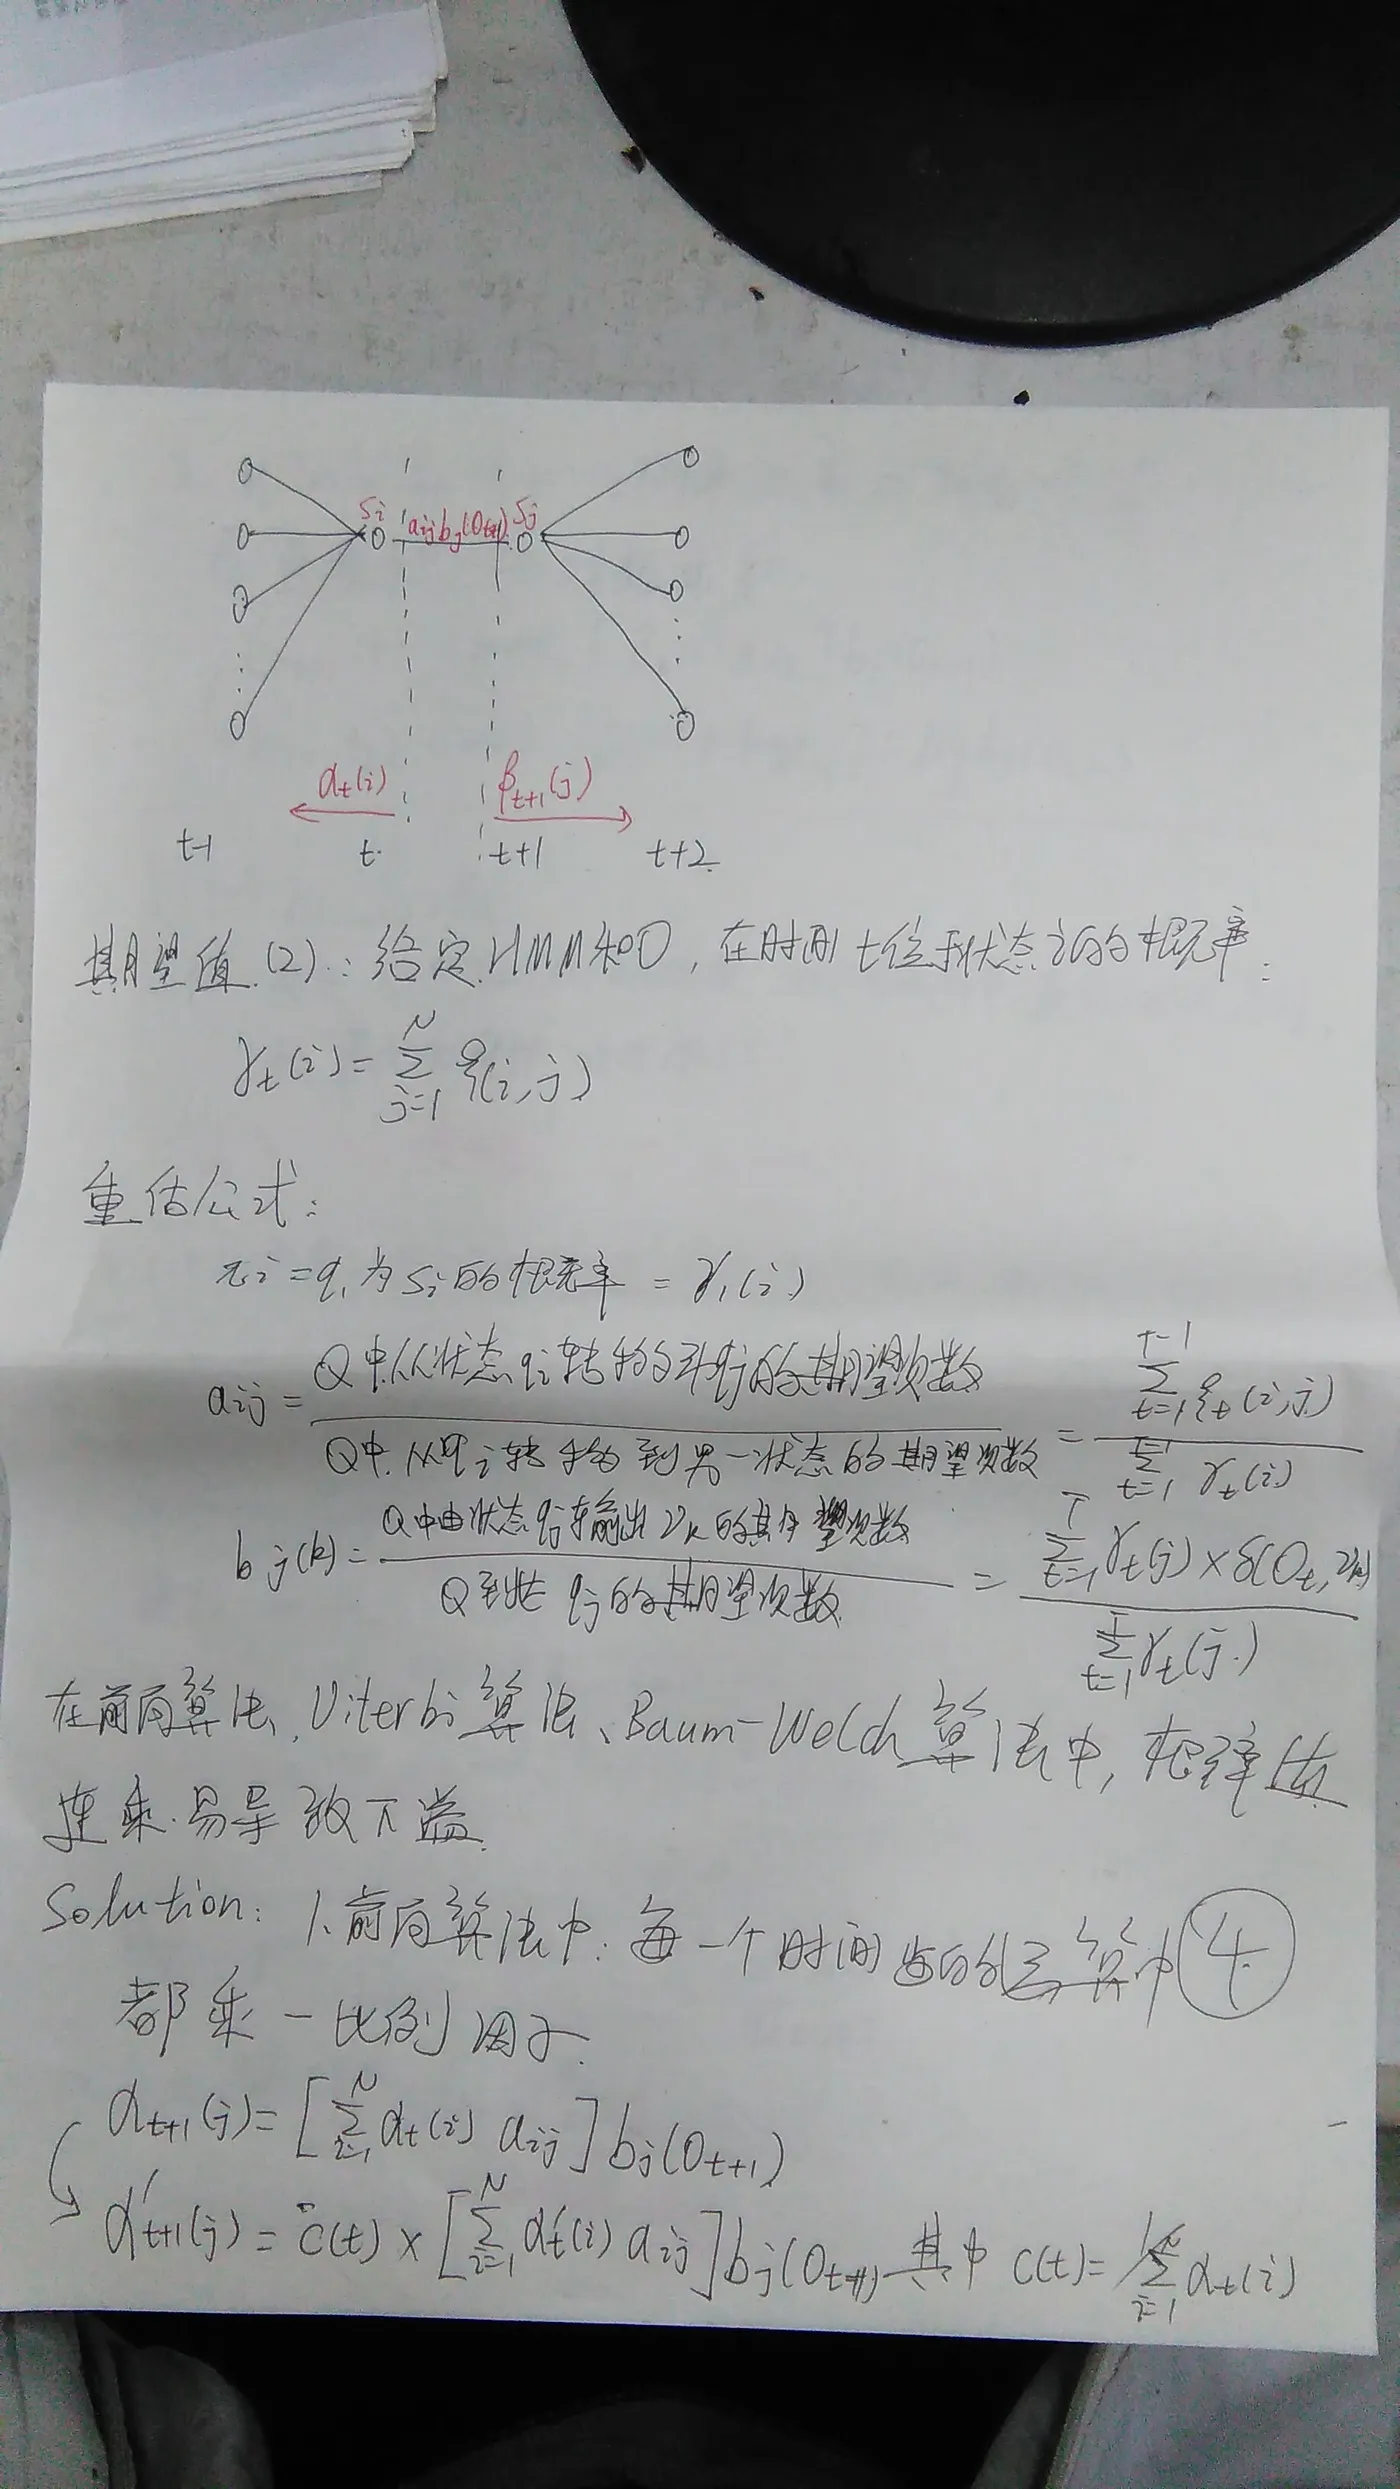 Si aij bj(Ot+1) Sj
αt(i) βt+1(j)
t-1 t t+1 t+2
期望值(2): 给定HMM和O, 在时间t位于状态i的概率:
γt(i) = Σ_{j=1}^{N} ξ(i,j)
重估公式:
πi = q1为Si的概率 = γ1(i)
aij = Q中从状态qi转移到qj的期望次数 / Q中从qi转移到另一状态的期望次数 = Σ_{t=1}^{T-1} ξt(i,j) / Σ_{t=1}^{T-1} γt(i)
bj(k) = Q中由状态qj输出vk的期望次数 / Q到达qj的期望次数 = Σ_{t=1}^{T} γt(j) × δ(Ot, vk) / Σ_{t=1}^{T} γt(j)
在前向算法、Viterbi算法、Baum-Welch算法中, 概率
连乘易导致下溢.
Solution: 1、前向算法中: 每一个时间步的运算中 ④
都乘一比例因子.
αt+1(j) = [Σ_{i=1}^{N} αt(i) aij] bj(Ot+1)
α't+1(j) = c(t) × [Σ_{i=1}^{N} α't(i) aij] bj(Ot+1) 其中 c(t) = 1/Σ_{i=1}^{N} αt(i)